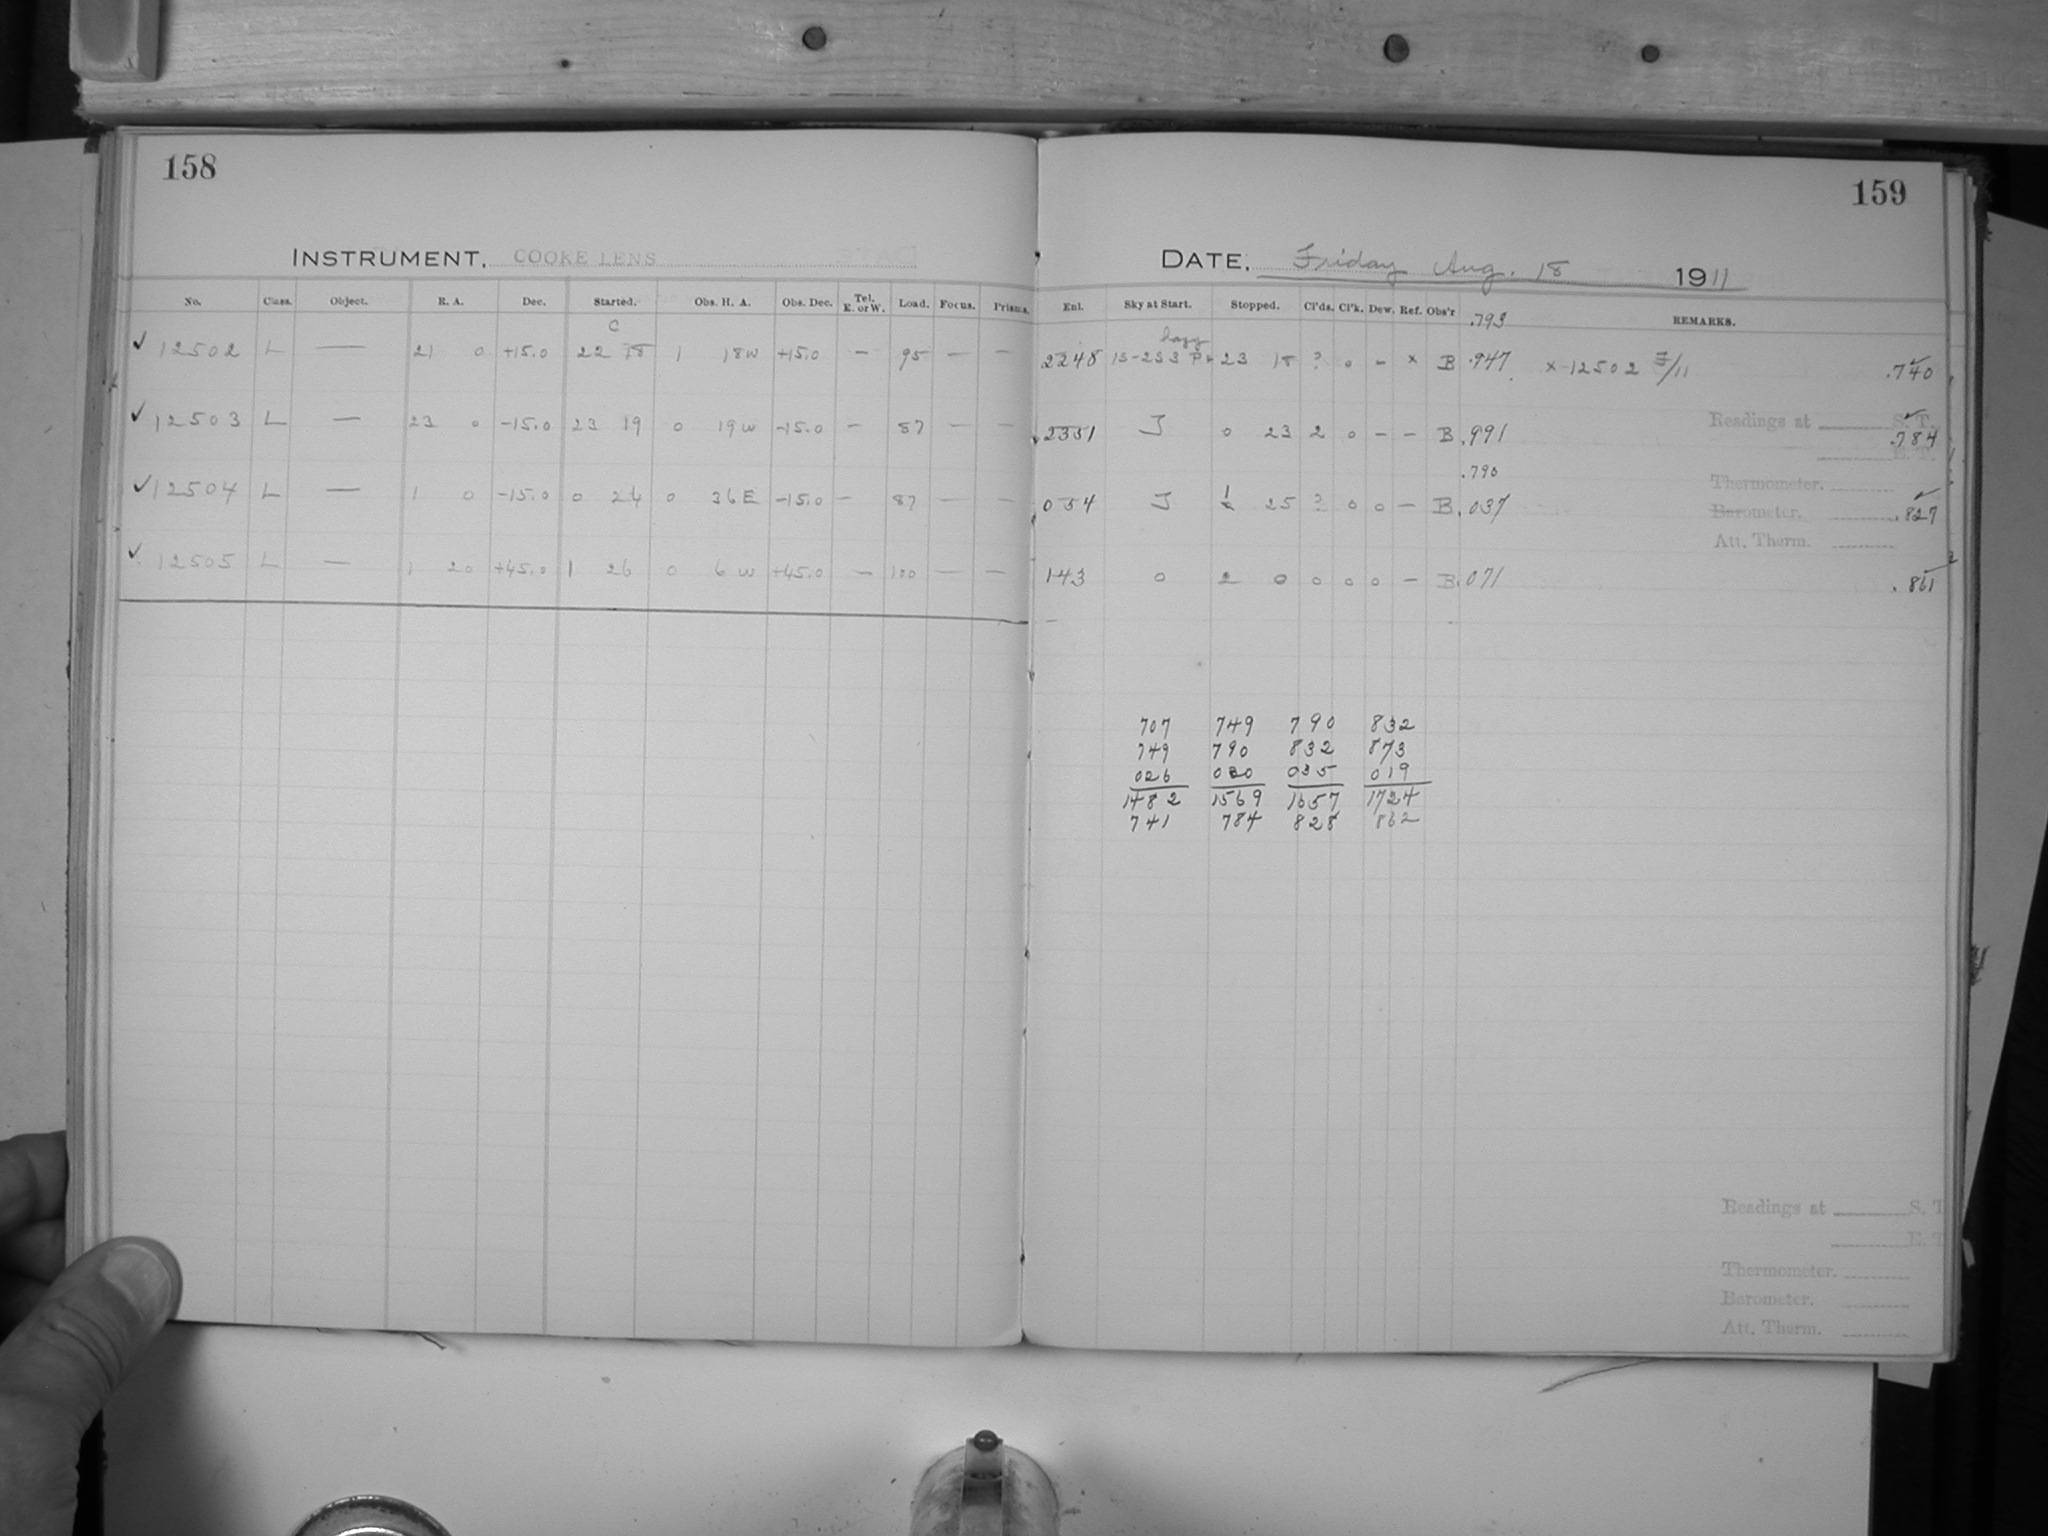 158
INSTRUMENT, COOKE LENS
No. Class. Object. R. A. Dec. Started. Obs. H. A. Obs. Dec. Tel. E. or W. Load. Focus. Prisms.
C
✓ 12502 L — 21 0 +15.0 22 18 1 18W +15.0 — 95 — —
✓ 12503 L — 23 0 -15.0 23 19 0 19W -15.0 — 87 — —
✓ 12504 L — 1 0 -15.0 0 24 0 36E -15.0 — 87 — —
✓ 12505 L — 1 20 +45.0 1 26 0 6W +45.0 — 100 — —
159
DATE, Friday Aug. 18 1911
Enl. Sky at Start. Stopped. Cl'ds. Cl'k. Dew. Ref. Obs'r .793 REMARKS.
hazy
2248 23 18 ? 0 — × B .947 ×-12502 F/11 .740
Readings at S. T.
2351 J 0 23 2 0 — — B .991 .784
E. T.
.790
Thermometer.
054 J 25 ? 0 0 — B .037 .827
Barometer.
Att. Therm.
143 0 2 0 0 0 0 — B .071 .861
707 749 790 832
749 790 832 873
026 020 035 019
1482 1569 1657 1724
741 784 828 862
Readings at S. T
E. T
Thermometer.
Barometer.
Att. Therm.